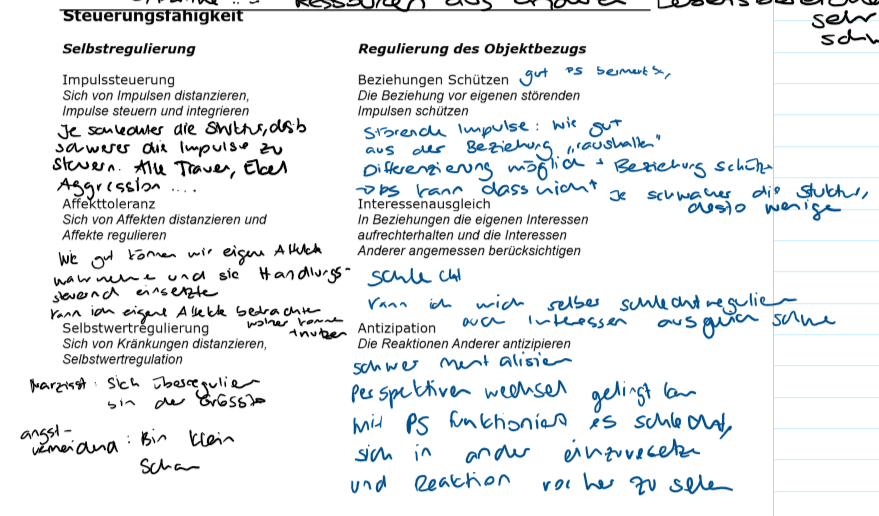 Ressourcen aus
Steuerungsfähigkeit
sehr
Selbstregulierung
Impulssteuerung
Sich von Impulsen distanzieren,
Impulse steuern und integrieren
Je schlechter die Struktur, desto
schwerer die Impulse zu
steuern. Alle Trauer, Ekel
Aggression ....
Affekttoleranz
Sich von Affekten distanzieren und
Affekte regulieren
Wie gut können wir eigene Affekte
und sie Handlungs-
steuernd einsetzte
kann ich eigene Affekte betrachte
woher kommt
+ nutzen
Selbstwertregulierung
Sich von Kränkungen distanzieren,
Selbstwertregulation
Narzisst: Sich überregulier
bin der Grösste
angst-
vermeidend: Bin klein
Scham
Regulierung des Objektbezugs
Beziehungen Schützen gut PS
Die Beziehung vor eigenen störenden
Impulsen schützen
Störende Impulse: wie gut
aus der Beziehung „raushalten"
Differenzierung möglich + Beziehung schütze
→ PS kann dass nicht Je schwacher die Struktur,
desto wenige
Interessenausgleich
In Beziehungen die eigenen Interessen
aufrechterhalten und die Interessen
Anderer angemessen berücksichtigen
schlecht
kann ich mich selber schlecht regulier
auch Interessen ausgleich schwe
Antizipation
Die Reaktionen Anderer antizipieren
schwer mentalisier
Perspektiven wechsel gelingt kau
Mit PS funktioniert es schlecht,
sich in ander
und Reaktion vorher zu sehen